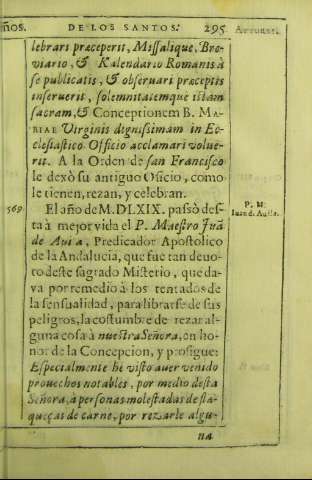 ños.
DE LOS SANTOS.
295
lebrari præceperit, Missalique, Bre-
viario, & Kalendario Romanis à
se publicatis, & observari præceptis
inseruerit, solemnitatemque istam
sacram, & Conceptionem B. MA-
RIAE Virginis dignissimam in Ec-
clesiastico Officio acclamari volue-
rit. A la Orden de san Francisco
le dexò su antiguo Oficio, como
le tienen, rezan, y celebran.
569
El año de M.DLXIX. passò des-
ta à mejor vida el P. Maestro Juã
P. M.
Iuan d. Auila.
de Auila, Predicador Apostolico
de la Andalucia, que fue tan deuo-
to deste sagrado Misterio, que da-
va por remedio à los tentados de
la sensualidad, para librarse de sus
peligros, la costumbre de rezar al-
guna cosa à nuestra Señora, en ho-
nor de la Concepcion, y prosigue:
Especialmente hè visto auer venido
prouechos notables, por medio desta
Señora, à personas molestadas de fla-
queças de carne, por rezarle algu-
na